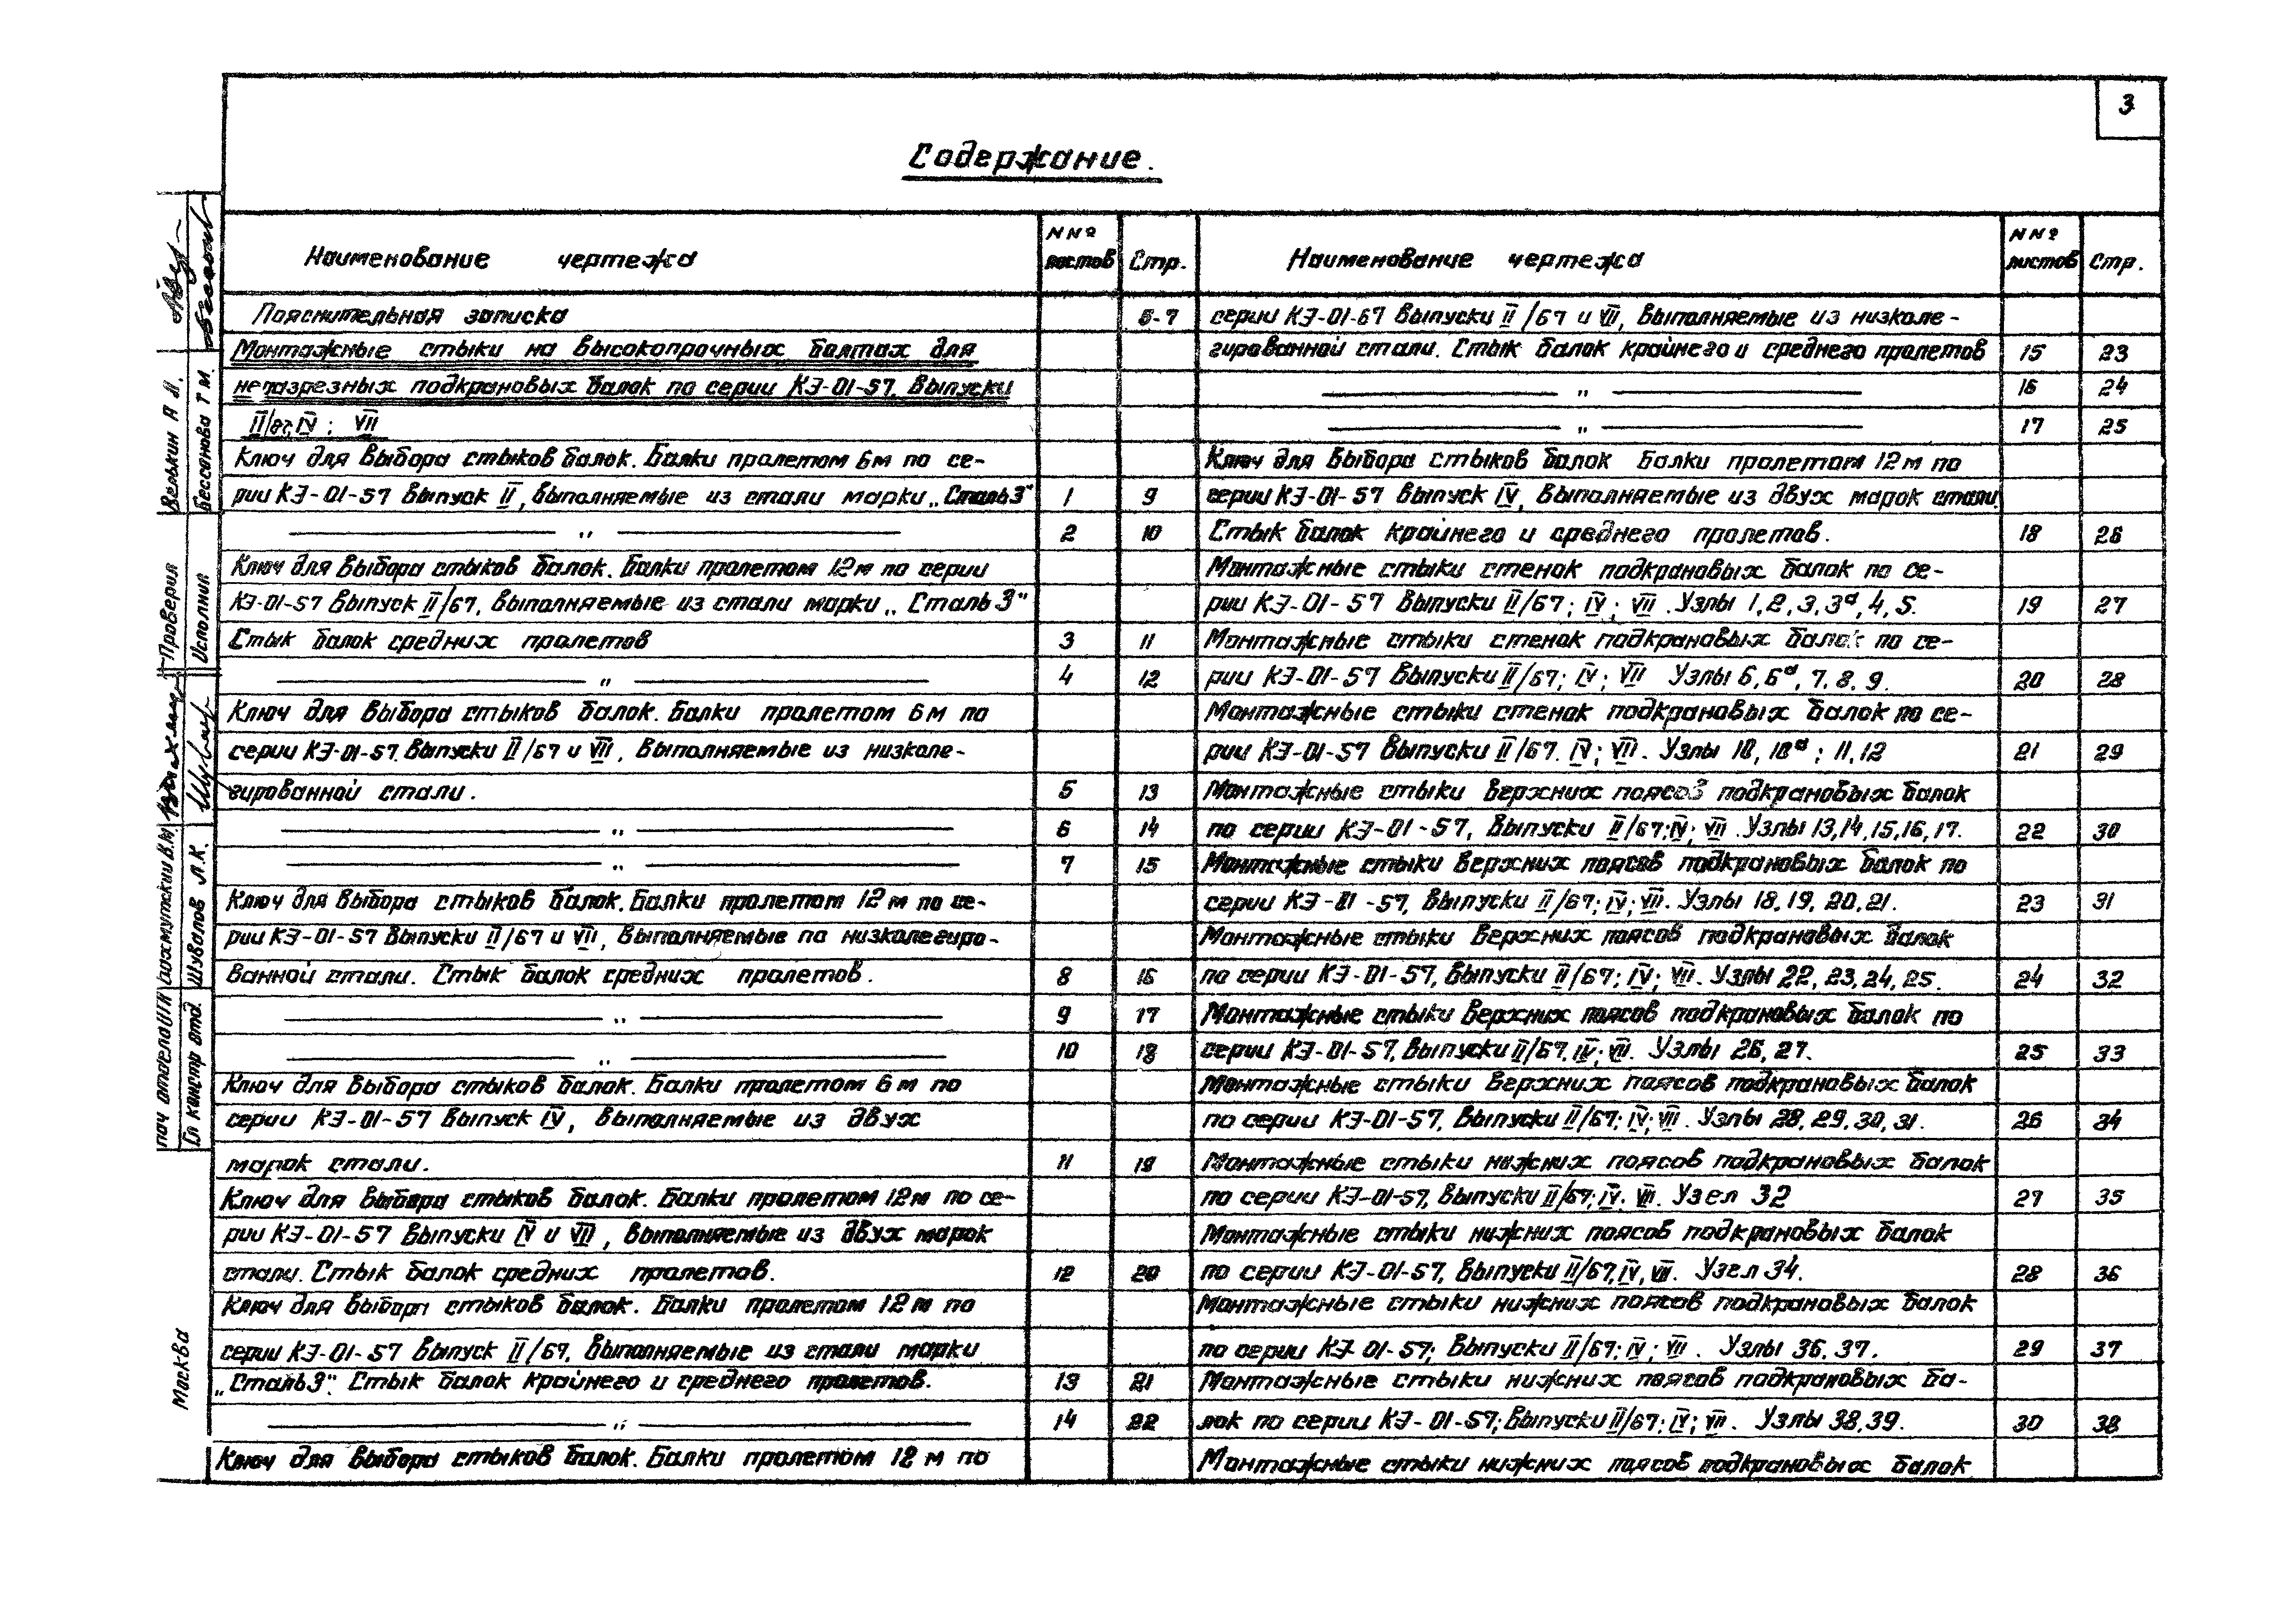 3
Содержание.
Наименование чертежа
NNº листов
Стр.
Пояснительная записка 5-7
Монтажные стыки на высокопрочных болтах для
неразрезных подкрановых балок по серии КЭ-01-57. Выпуски
II/67, IV; VII
Ключ для выбора стыков балок. Балки пролетом 6м по се-
рии КЭ-01-57 Выпуск II, выполняемые из стали марки „Сталь3" 1 9
— " — 2 10
Ключ для выбора стыков балок. Балки пролетом 12м по серии
КЭ-01-57 Выпуск II/67, выполняемые из стали марки „Сталь 3"
Стык балок средних пролетов 3 11
— " — 4 12
Ключ для выбора стыков балок. Балки пролетом 6м по
серии КЭ-01-57. Выпуски II/67 и VII, выполняемые из низколе-
гированной стали. 5 13
— " — 6 14
— " — 7 15
Ключ для выбора стыков балок. Балки пролетом 12м по се-
рии КЭ-01-57 Выпуски II/67 и VII, выполняемые по низколегиро-
ванной стали. Стык балок средних пролетов. 8 16
— " — 9 17
— " — 10 18
Ключ для выбора стыков балок. Балки пролетом 6м по
серии КЭ-01-57 Выпуск IV, выполняемые из двух
марок стали. 11 19
Ключ для выбора стыков балок. Балки пролетом 12м по се-
рии КЭ-01-57 Выпуски IV и VII, выполняемые из двух марок
стали. Стык балок средних пролетов. 12 20
Ключ для выбора стыков балок. Балки пролетом 12м по
серии КЭ-01-57 Выпуск II/67, выполняемые из стали марки
„Сталь3". Стык балок крайнего и среднего пролетов. 13 21
— " — 14 22
Ключ для выбора стыков балок. Балки пролетом 12 м по
Наименование чертежа
NNº листов
Стр.
серии КЭ-01-67 Выпуски II/67 и VII, выполняемые из низколе-
гированной стали. Стык балок крайнего и среднего пролетов 15 23
— " — 16 24
— " — 17 25
Ключ для выбора стыков балок Балки пролетом 12м по
серии КЭ-01-57 Выпуск IV, выполняемые из двух марок стали.
Стык балок крайнего и среднего пролетов. 18 26
Монтажные стыки стенок подкрановых балок по се-
рии КЭ-01-57 Выпуски II/67; IV; VII. Узлы 1,2,3,3а,4,5. 19 27
Монтажные стыки стенок подкрановых балок по се-
рии КЭ-01-57 Выпуски II/67; IV; VII Узлы 6,6а,7,8,9. 20 28
Монтажные стыки стенок подкрановых балок по се-
рии КЭ-01-57 Выпуски II/67. IV; VII. Узлы 10, 10а; 11,12 21 29
Монтажные стыки верхних поясов подкрановых балок
по серии КЭ-01-57, Выпуски II/67; IV; VII. Узлы 13,14,15,16,17. 22 30
Монтажные стыки верхних поясов подкрановых балок по
серии КЭ-01-57, Выпуски II/67; IV; VII. Узлы 18,19,20,21. 23 31
Монтажные стыки верхних поясов подкрановых балок
по серии КЭ-01-57, Выпуски II/67; IV; VII. Узлы 22, 23, 24, 25. 24 32
Монтажные стыки верхних поясов подкрановых балок по
серии КЭ-01-57, Выпуски II/67, IV; VII. Узлы 26, 27. 25 33
Монтажные стыки верхних поясов подкрановых балок
по серии КЭ-01-57, Выпуски II/67; IV; VII. Узлы 28, 29, 30, 31. 26 34
Монтажные стыки нижних поясов подкрановых балок
по серии КЭ-01-57, Выпуски II/67; IV. VII. Узел 32 27 35
Монтажные стыки нижних поясов подкрановых балок
по серии КЭ-01-57, Выпуски II/67, IV, VII. Узел 34. 28 36
Монтажные стыки нижних поясов подкрановых балок
по серии КЭ-01-57; Выпуски II/67; IV; VII. Узлы 36, 37. 29 37
Монтажные стыки нижних поясов подкрановых ба-
лок по серии КЭ-01-57; Выпуски II/67; IV; VII. Узлы 38, 39. 30 38
Монтажные стыки нижних поясов подкрановых балок
Проверил Велькин А
Исполнил Бессонова Т М.
нач отдела В.М
Гл констр отд. Шувалов Л.К.
Москва